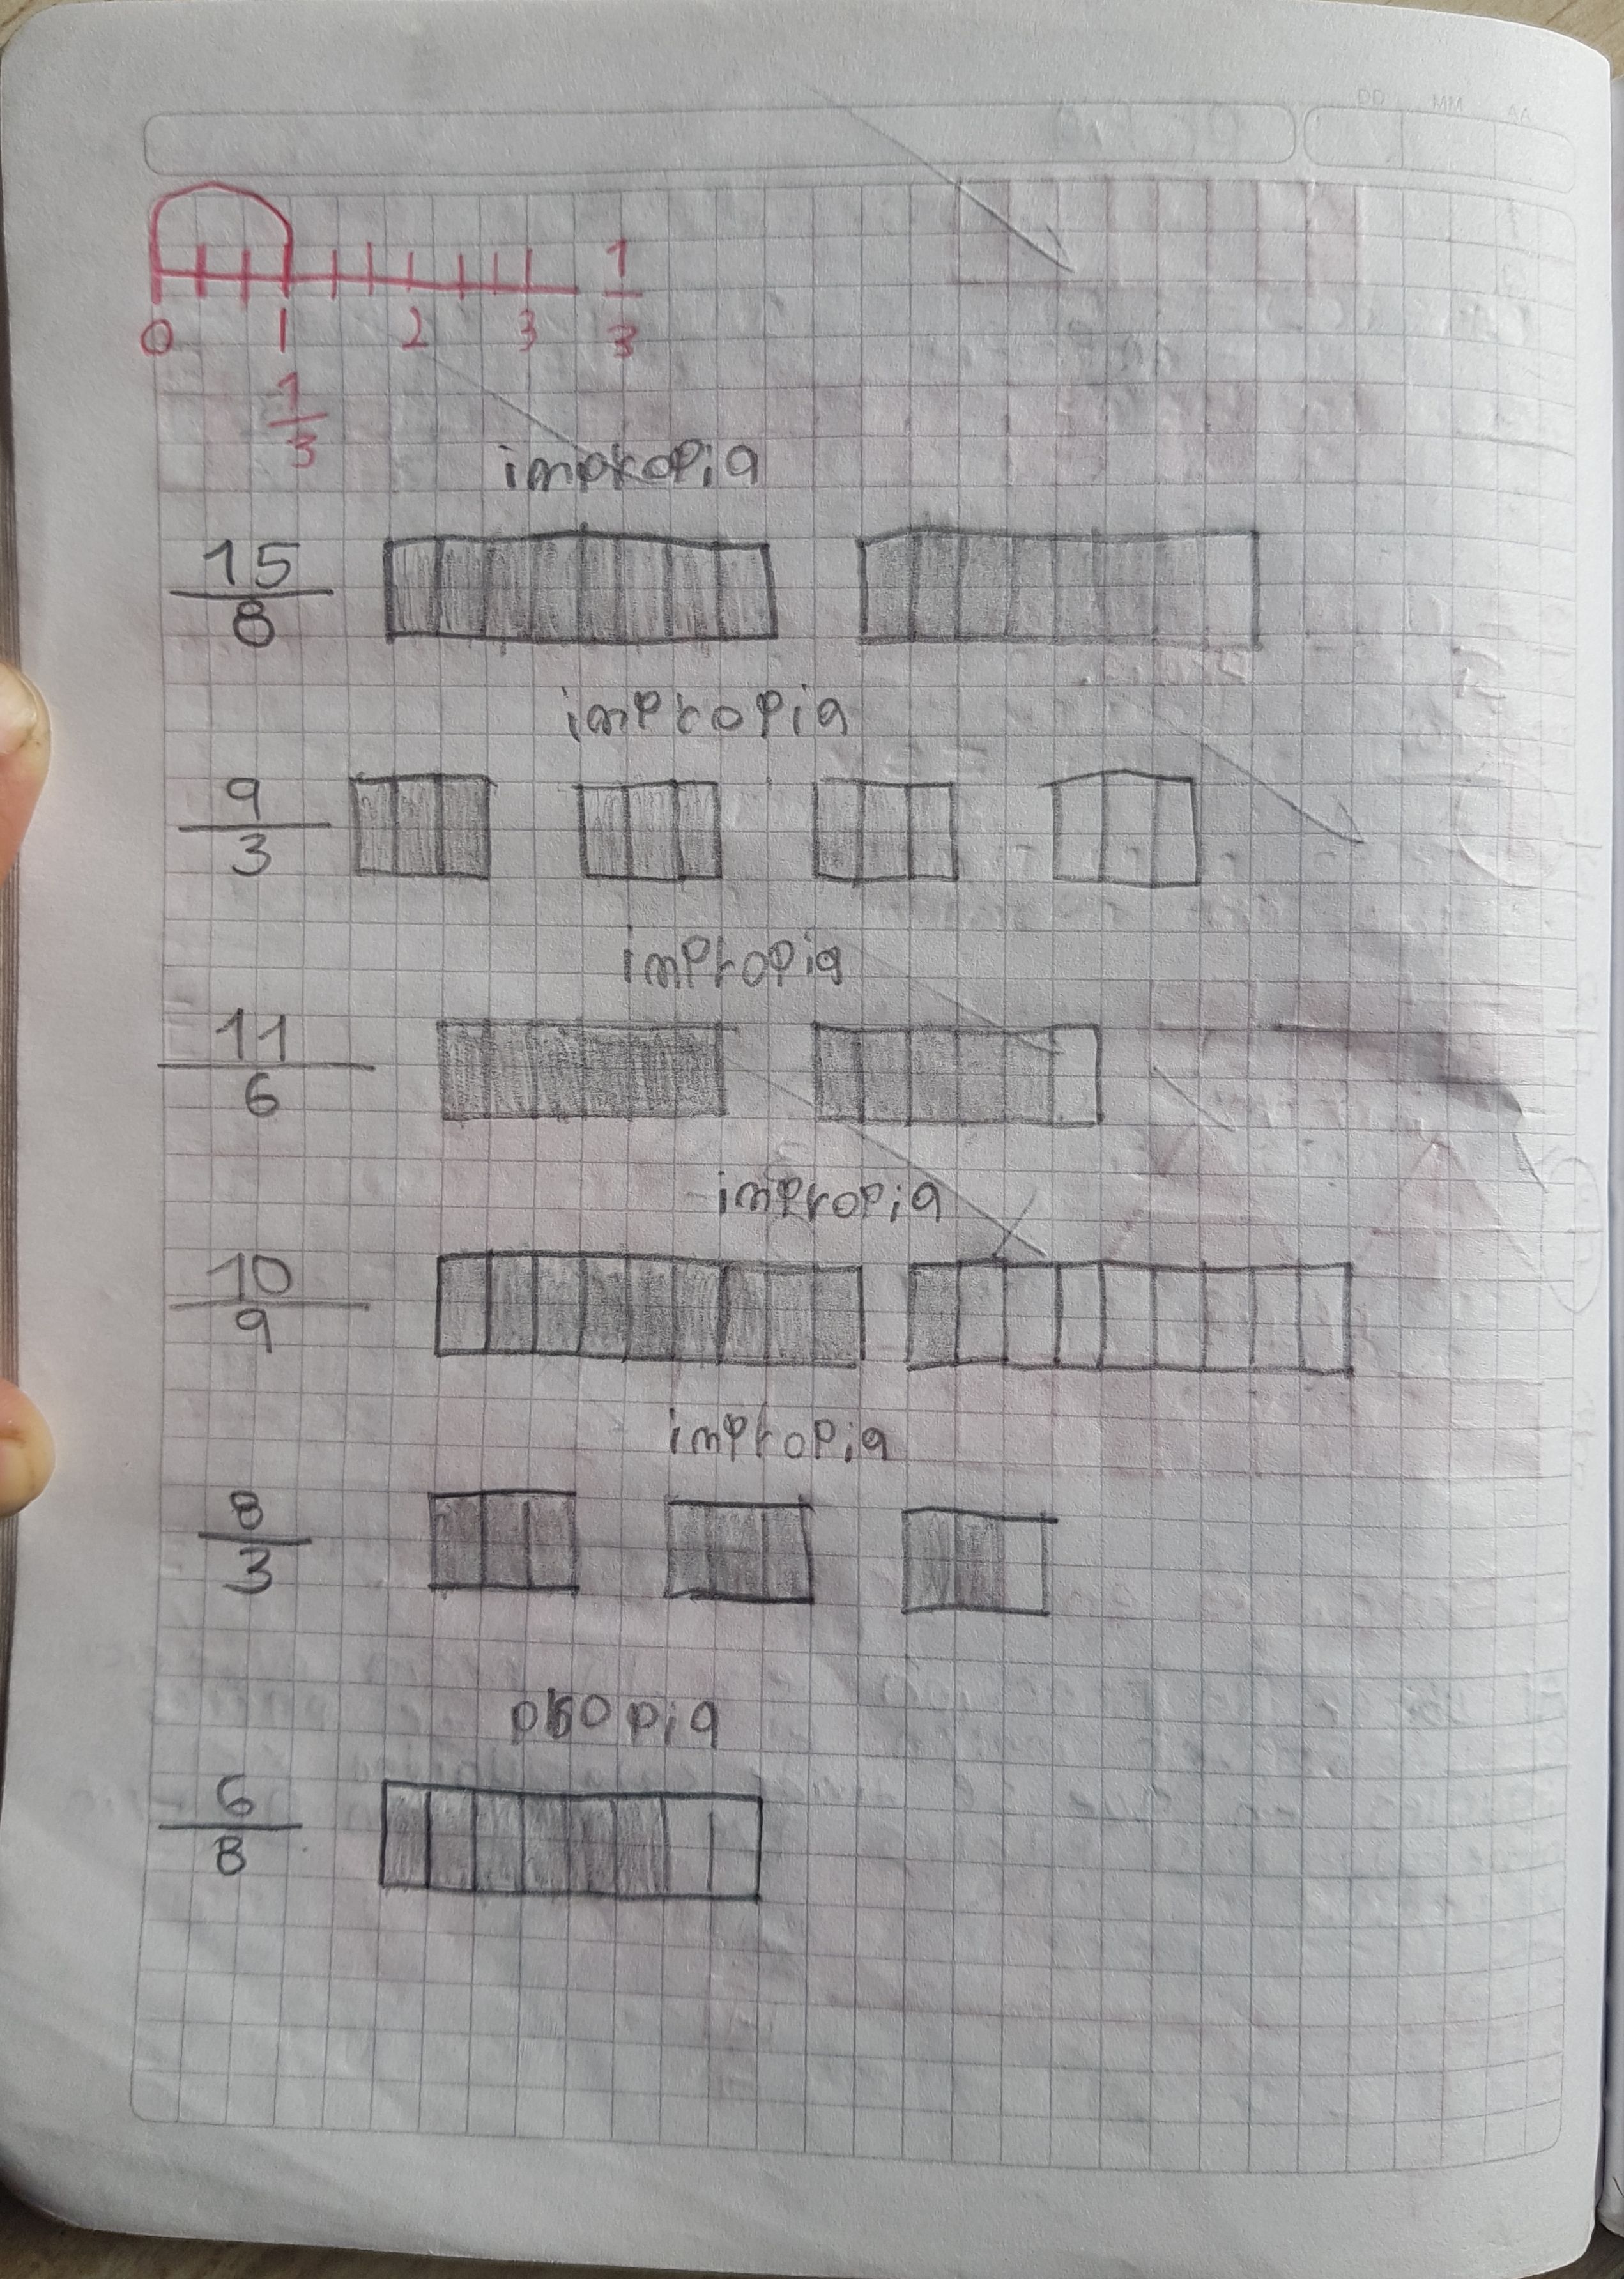 DD MM AA
1
0 1 2 3 3
1
3
impropia
15
8
impropia
9
3
impropia
11
6
impropia
10
9
impropia
8
3
propia
6
8